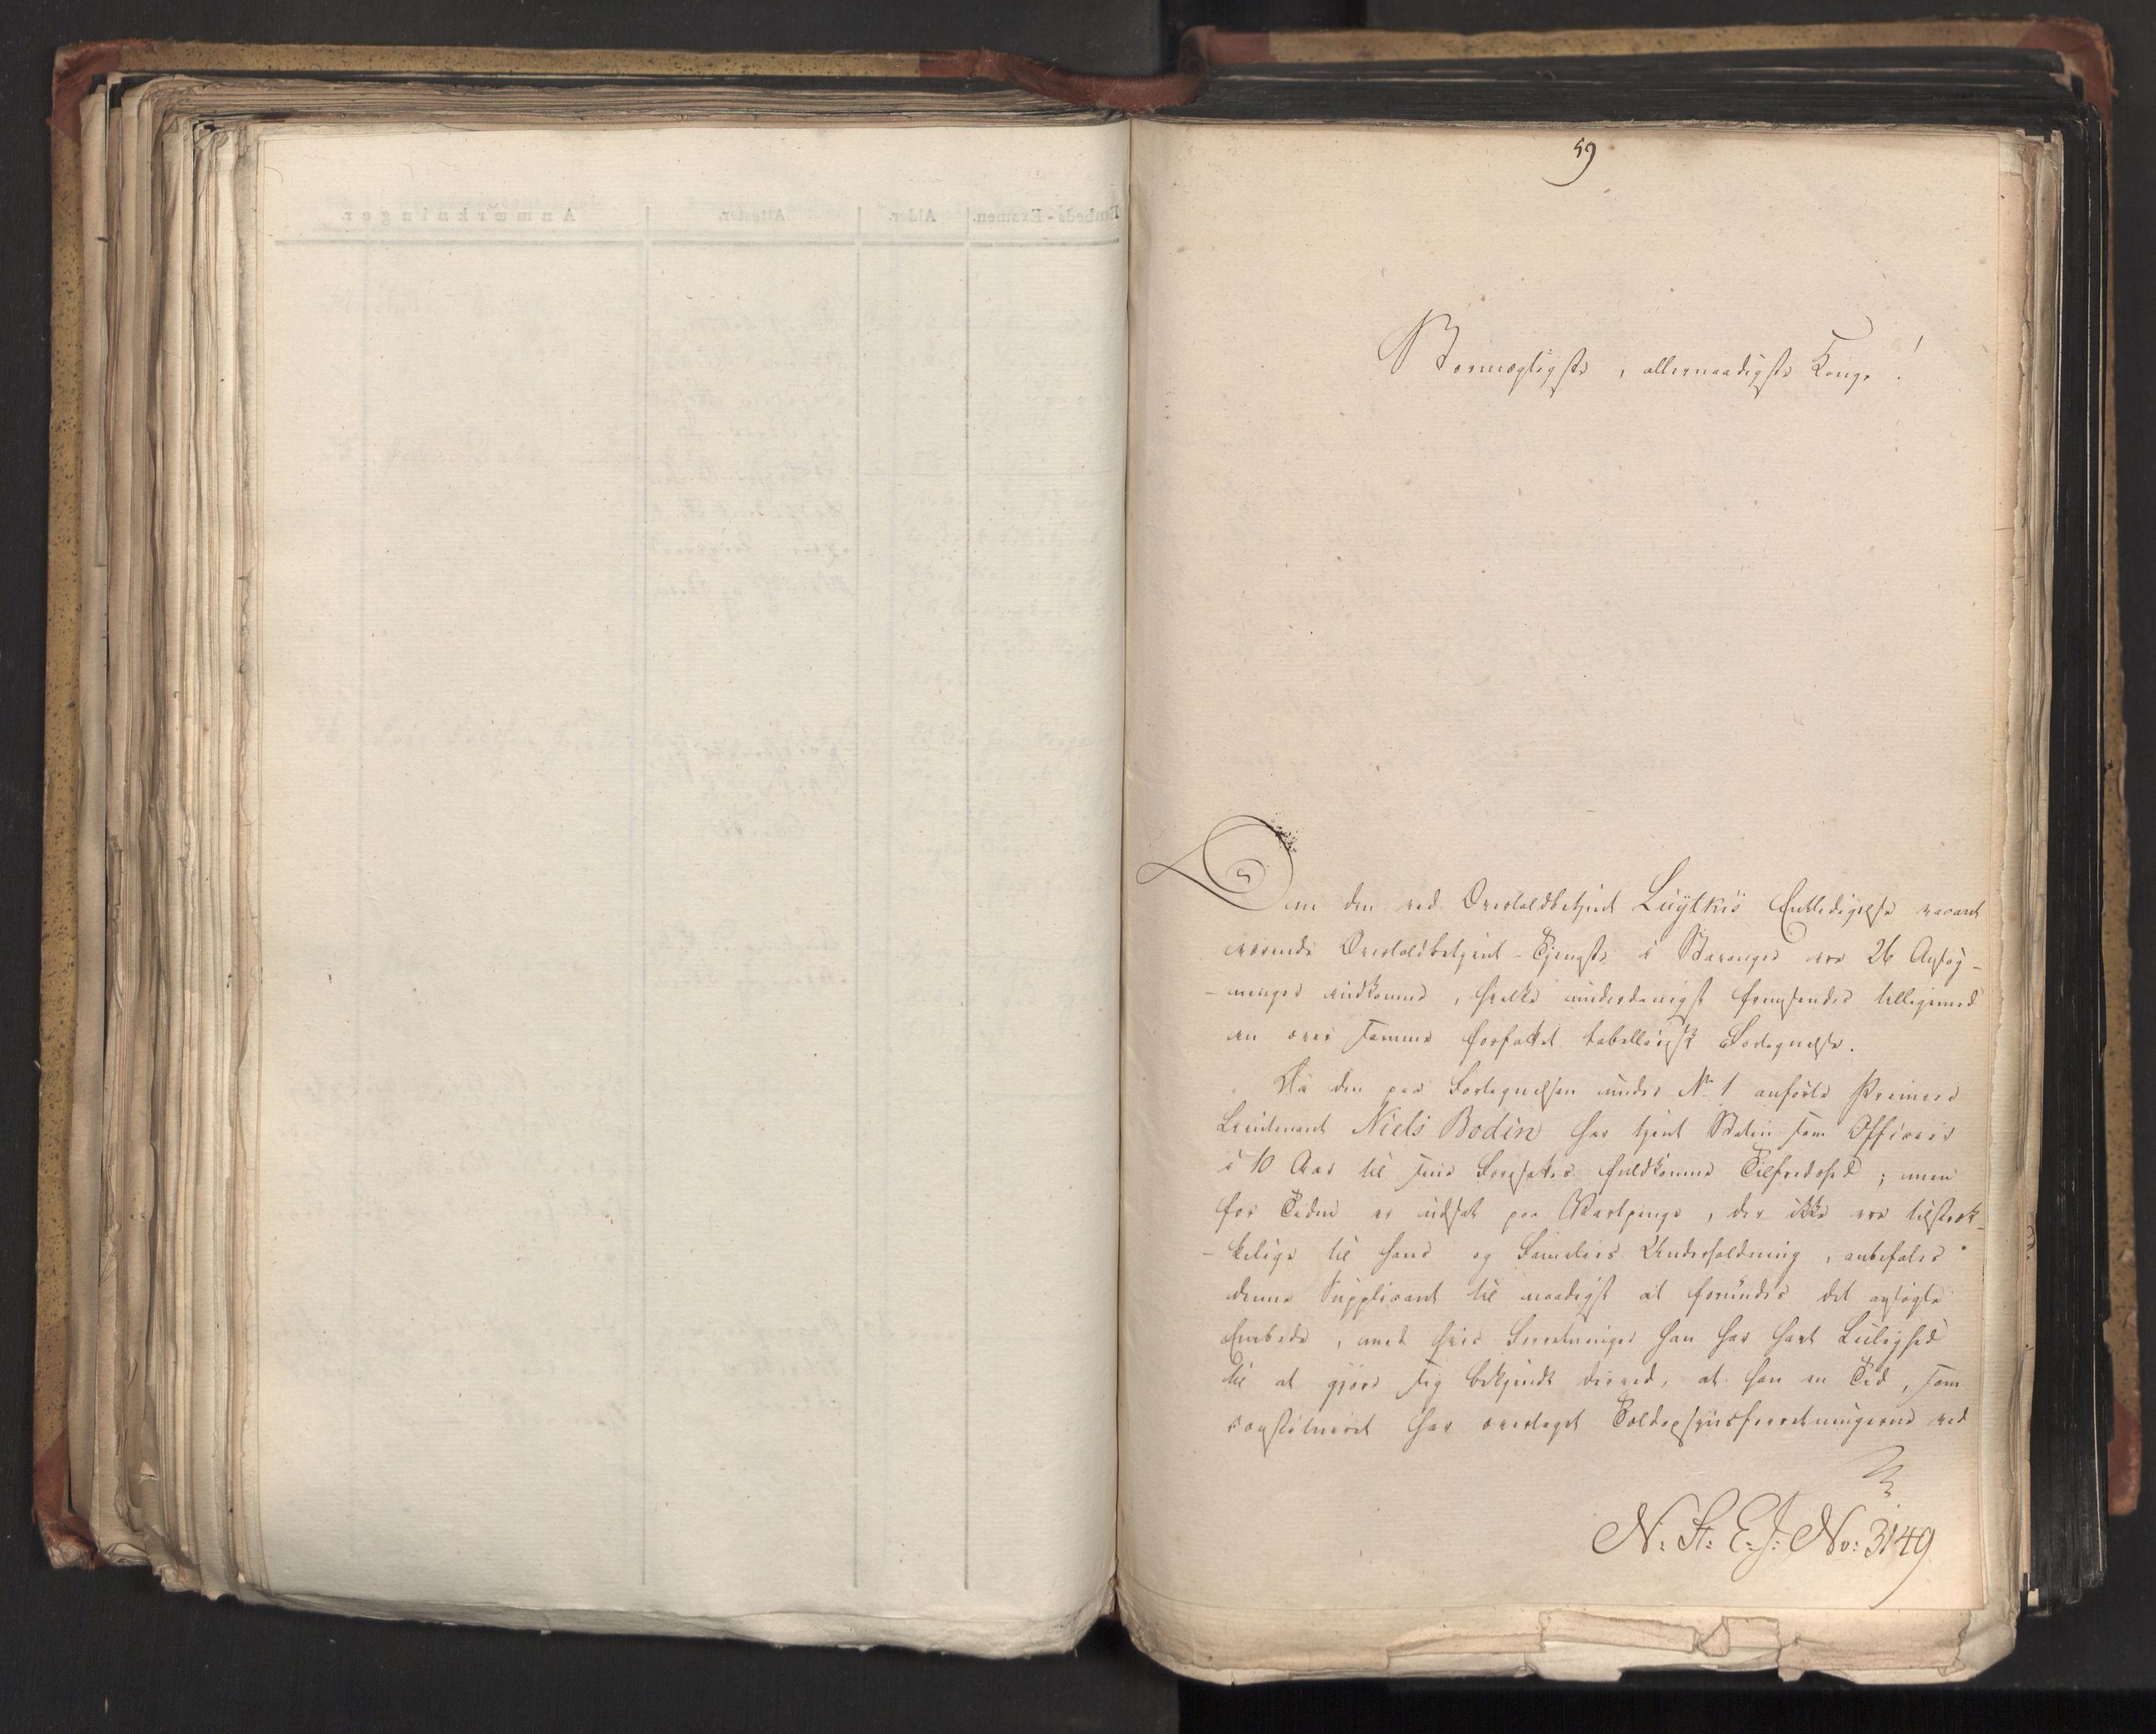 59
Stormægtigste, allernaadigste Konge!
Om den ved Overtoldbetjent Luytkis Entledigelse vacant
værende Overtoldbetjent-Tjeneste i Stavanger ere 26 Ansøg-
-ninger indkomne, hvilke underdanigst fremsendes tilligemed
en over samme forfattet tabellarisk Fortegnelse.
Da den paa Fortegnelsen under No 1 anførte Premier
Lieutenant Niels Bodin har tjent Staten som Officeer
i 10 Aar til sine Foresattes fuldkomne Tilfredshed; men
for Tiden er udsat paa Vartpenge, der ikke ere tilstræk-
-kelige til hans og Families Underholdning, anbefales
denne Supplicant til naadigst at forundes det ansøgte
Embede, med hvis Forretninger han har havt Leilighed
til at gjøre sig bekjendt derved, at han en Tid, som
constitueret har overtaget Toldopsynsforretningerne ved
N: St: E: J: No: 3149
Embeds-Examen.
Alder.
Attester.
Anmærkninger.